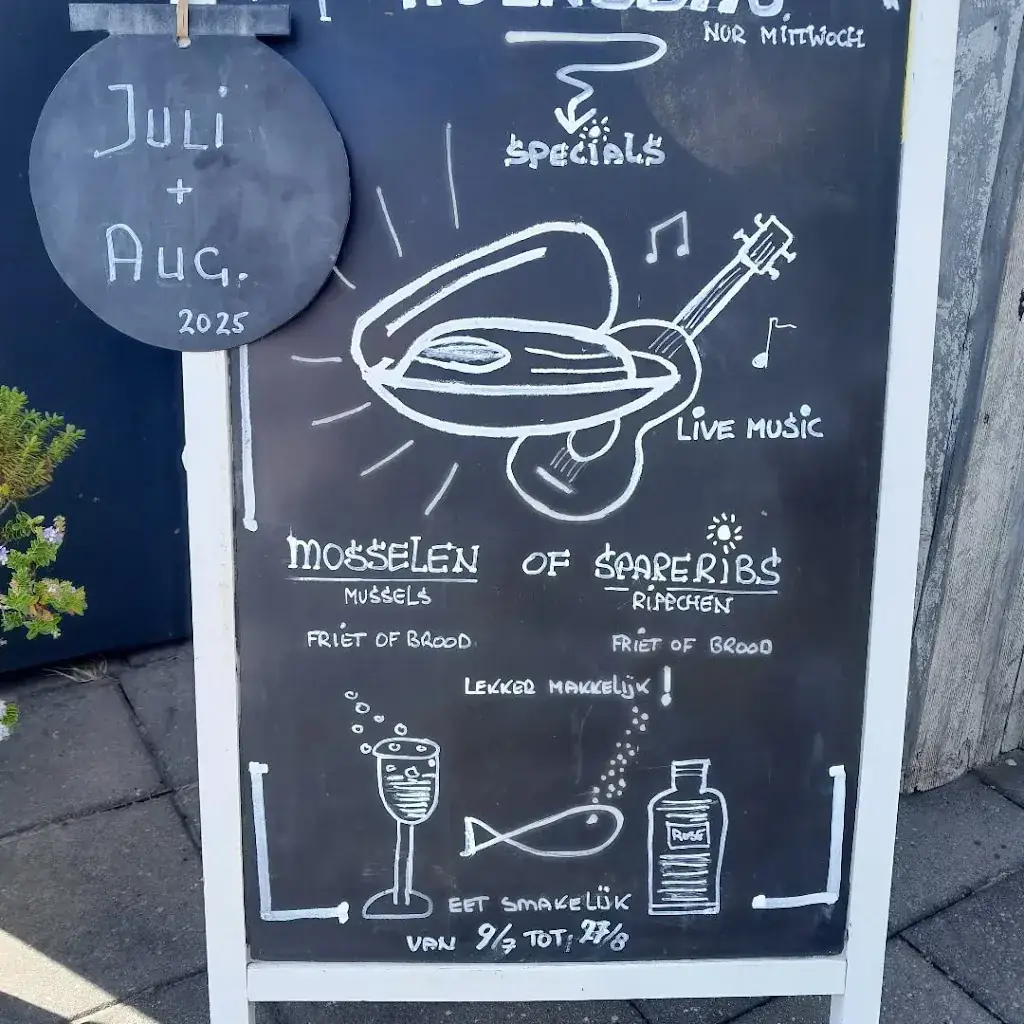 JULI
+
AUG.
2025
NUR MITTWOCH
SPECIALS
LIVE MUSIC
MOSSELEN OF SPARERIBS
MUSSELS RIPPCHEN
FRIET OF BROOD FRIET OF BROOD
LEKKER MAKKELIJK!
ROSÉ
EET SMAKELIJK
VAN 9/7 TOT 27/8